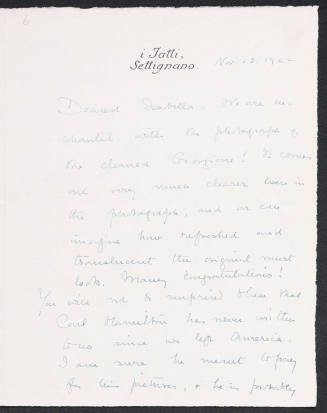 6
i Tatti.
Settignano.
Nov. 1922
Dearest Isabella. We are en-
chanted with the photograph of
the cleaned Giorgione! It comes
out very much clearer even in
the photograph, and we can
imagine how refreshed and
translucent the original must
look. Many congratulations!
You will not be surprised to hear that
Carl Hamilton has never written
to us since we left America.
I am sure he meant to pay
for his pictures, & he is probably